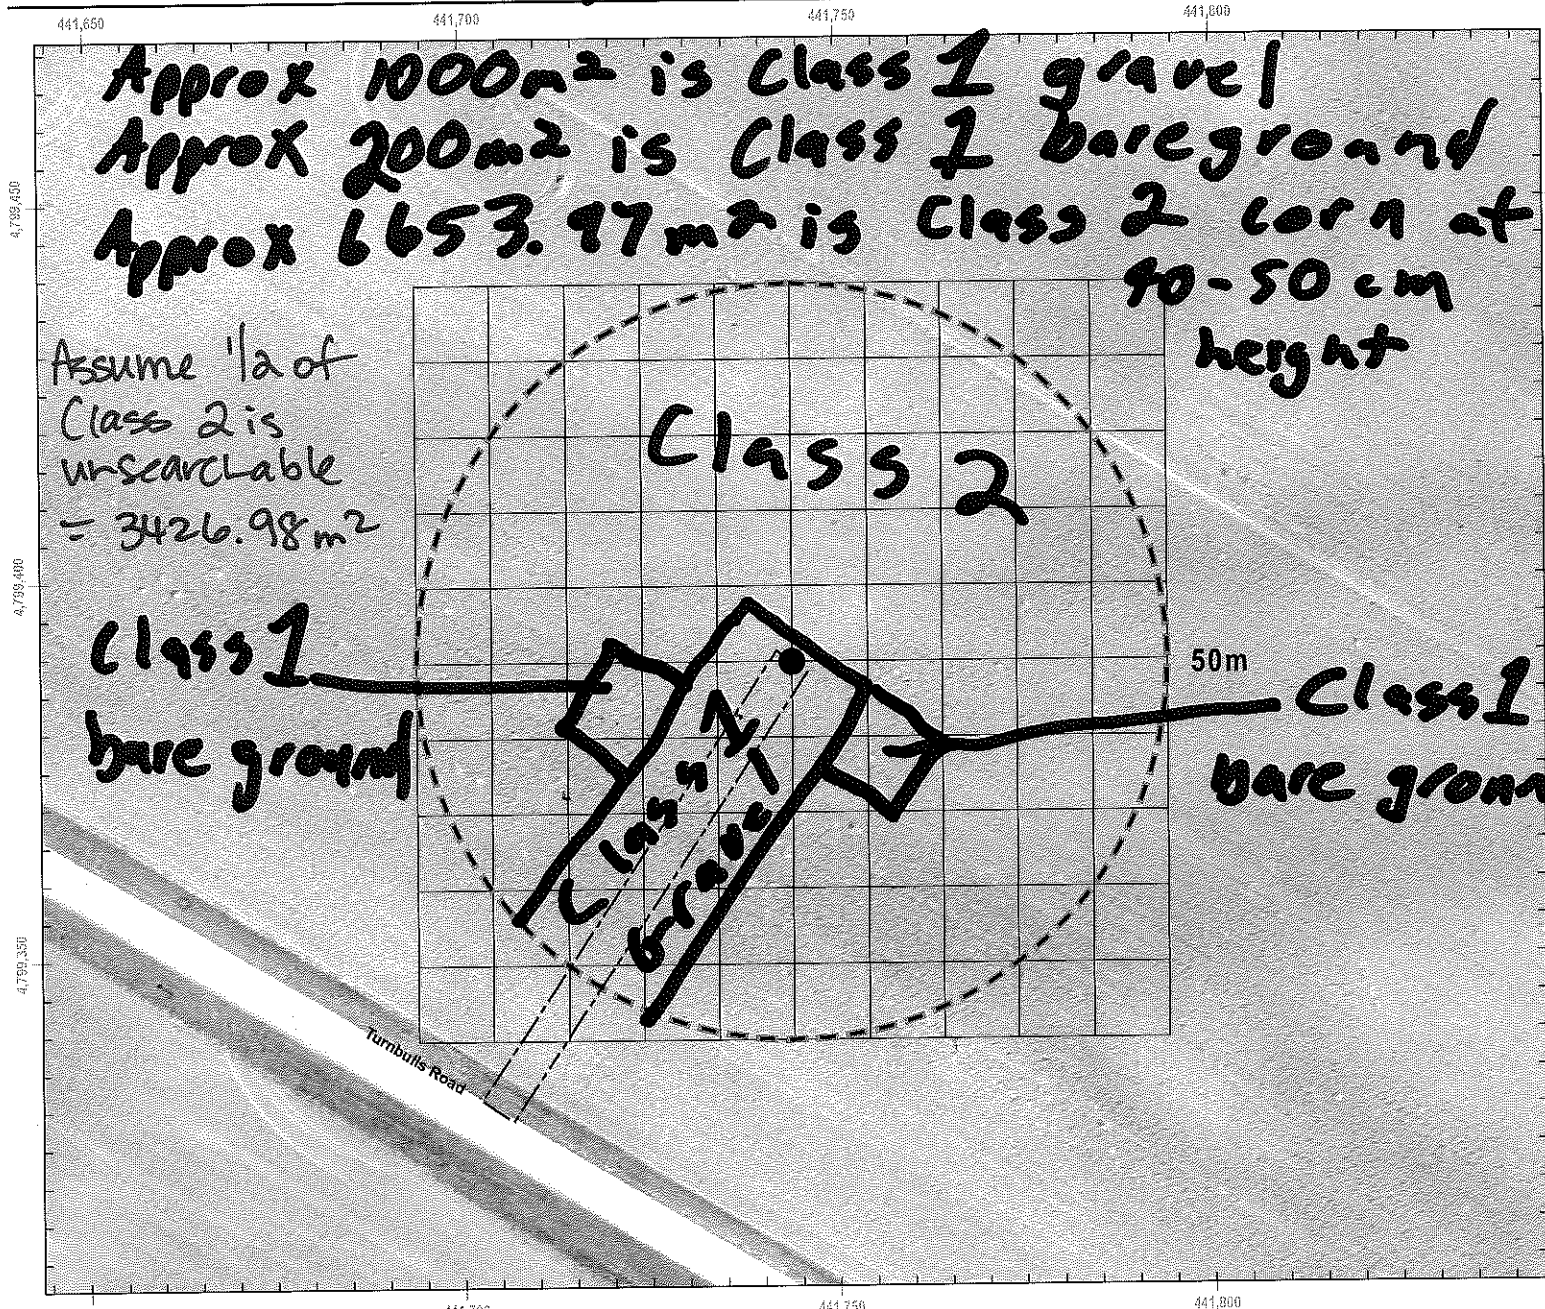 441,650 441,700 441,750 441,800
Approx 1000m² is Class 1 gravel
Approx 200m² is Class 1 bareground
4,799,450
Approx 6653.97m² is Class 2 corn at
40-50 cm
height
Assume 1/2 of
Class 2 is
unsearchable
= 3426.98m²
Class 2
4,799,400
Class 1
bare ground
50m
Class 1
bare groun
Class 1
gravel
4,799,350
Turnbulls Road
441,700 441,750 441,800